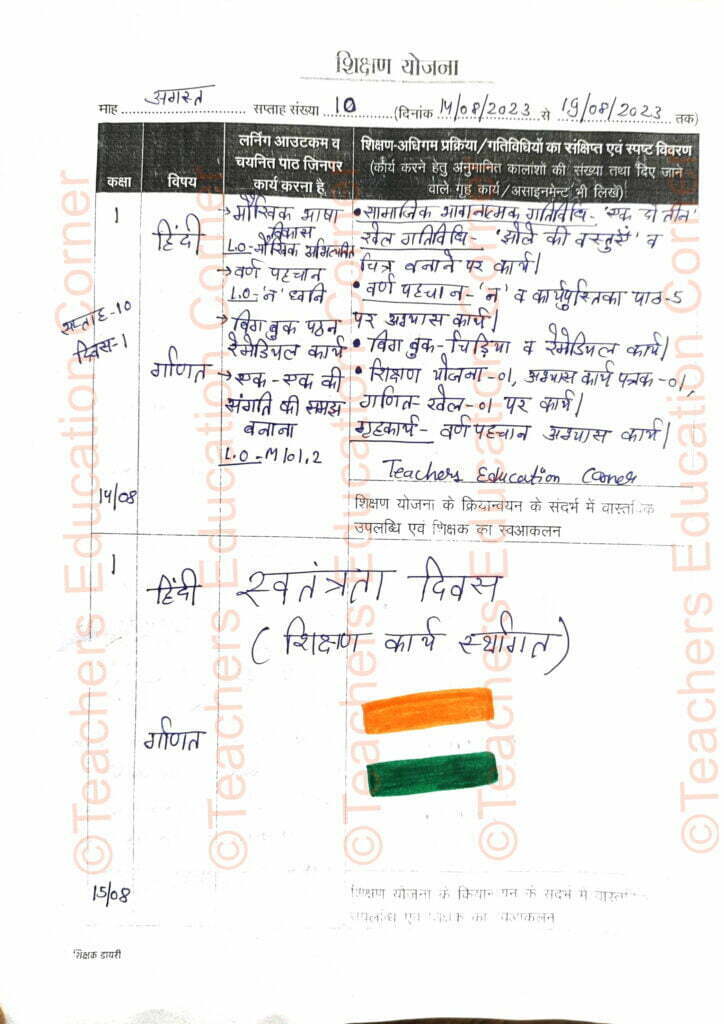 शिक्षण योजना
माह अगस्त सप्ताह संख्या 10 (दिनांक 14/08/2023 से 19/08/2023 तक)
कक्षा
विषय
लर्निंग आउटकम व
चयनित पाठ जिनपर
कार्य करना है
शिक्षण-अधिगम प्रक्रिया/गतिविधियों का संक्षिप्त एवं स्पष्ट विवरण
(कार्य करने हेतु अनुमानित कालांशों की संख्या तथा दिए जाने
वाले गृह कार्य/असाइनमेन्ट भी लिखें)
सप्ताह-10
दिवस-1
1
हिंदी
गणित
14/08
→ मौखिक भाषा
विकास
L.O-मौखिक अभिव्यक्ति
→ वर्ण पहचान
L.O-'न' ध्वनि
→ बिग बुक पठन
रेमेडियल कार्य
→ एक-एक की
संगति की समझ
बनाना
L.O-M101.2
• सामाजिक भावनात्मक गतिविधि-'एक दो तीन'
खेल गतिविधि- 'झोले की वस्तुएँ' व
चित्र बनाने पर कार्य।
• वर्ण पहचान-'न' व कार्यपुस्तिका पाठ-5
पर अभ्यास कार्य।
• बिग बुक-चिड़िया व रेमेडियल कार्य।
• शिक्षण योजना-01, अभ्यास कार्य पत्रक-01,
गणित खेल-01 पर कार्य।
गृहकार्य- वर्ण पहचान अभ्यास कार्य।
Teachers Education Corner
शिक्षण योजना के क्रियान्वयन के संदर्भ में वास्तविक
उपलब्धि एवं शिक्षक का स्वआकलन
1
हिंदी
स्वतंत्रता दिवस
(शिक्षण कार्य स्थगित)
गणित
15/08
शिक्षण योजना के क्रियान्वयन के संदर्भ में
उपलब्धि एवं शिक्षक का स्वआकलन
शिक्षक डायरी
©Teachers Education Corner
©Teachers Education Corner
©Teachers Education Corner
©Teachers Education Corner